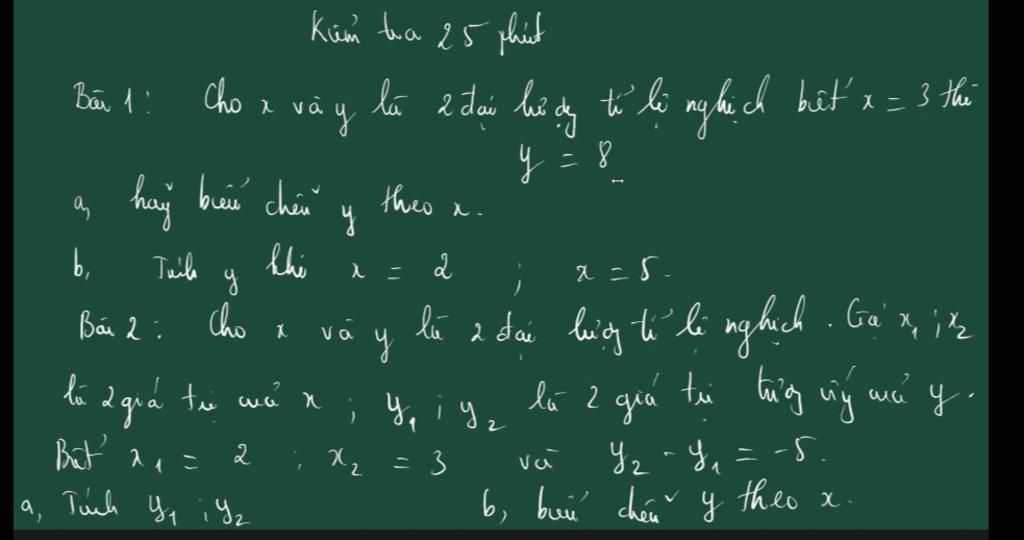 Kiểm tra 25 phút
Bài 1: Cho x và y là 2 đại lượng tỉ lệ nghịch biết x = 3 thì
y = 8
a, hãy biểu diễn y theo x.
b, Tính y khi x = 2 ; x = 5.
Bài 2: Cho x và y là 2 đại lượng tỉ lệ nghịch. Gọi x₁ ; x₂
là 2 giá trị của x ; y₁ ; y₂ là 2 giá trị tương ứng của y.
Biết x₁ = 2 ; x₂ = 3 và y₂ - y₁ = -5.
a, Tính y₁ ; y₂ b, biểu diễn y theo x.